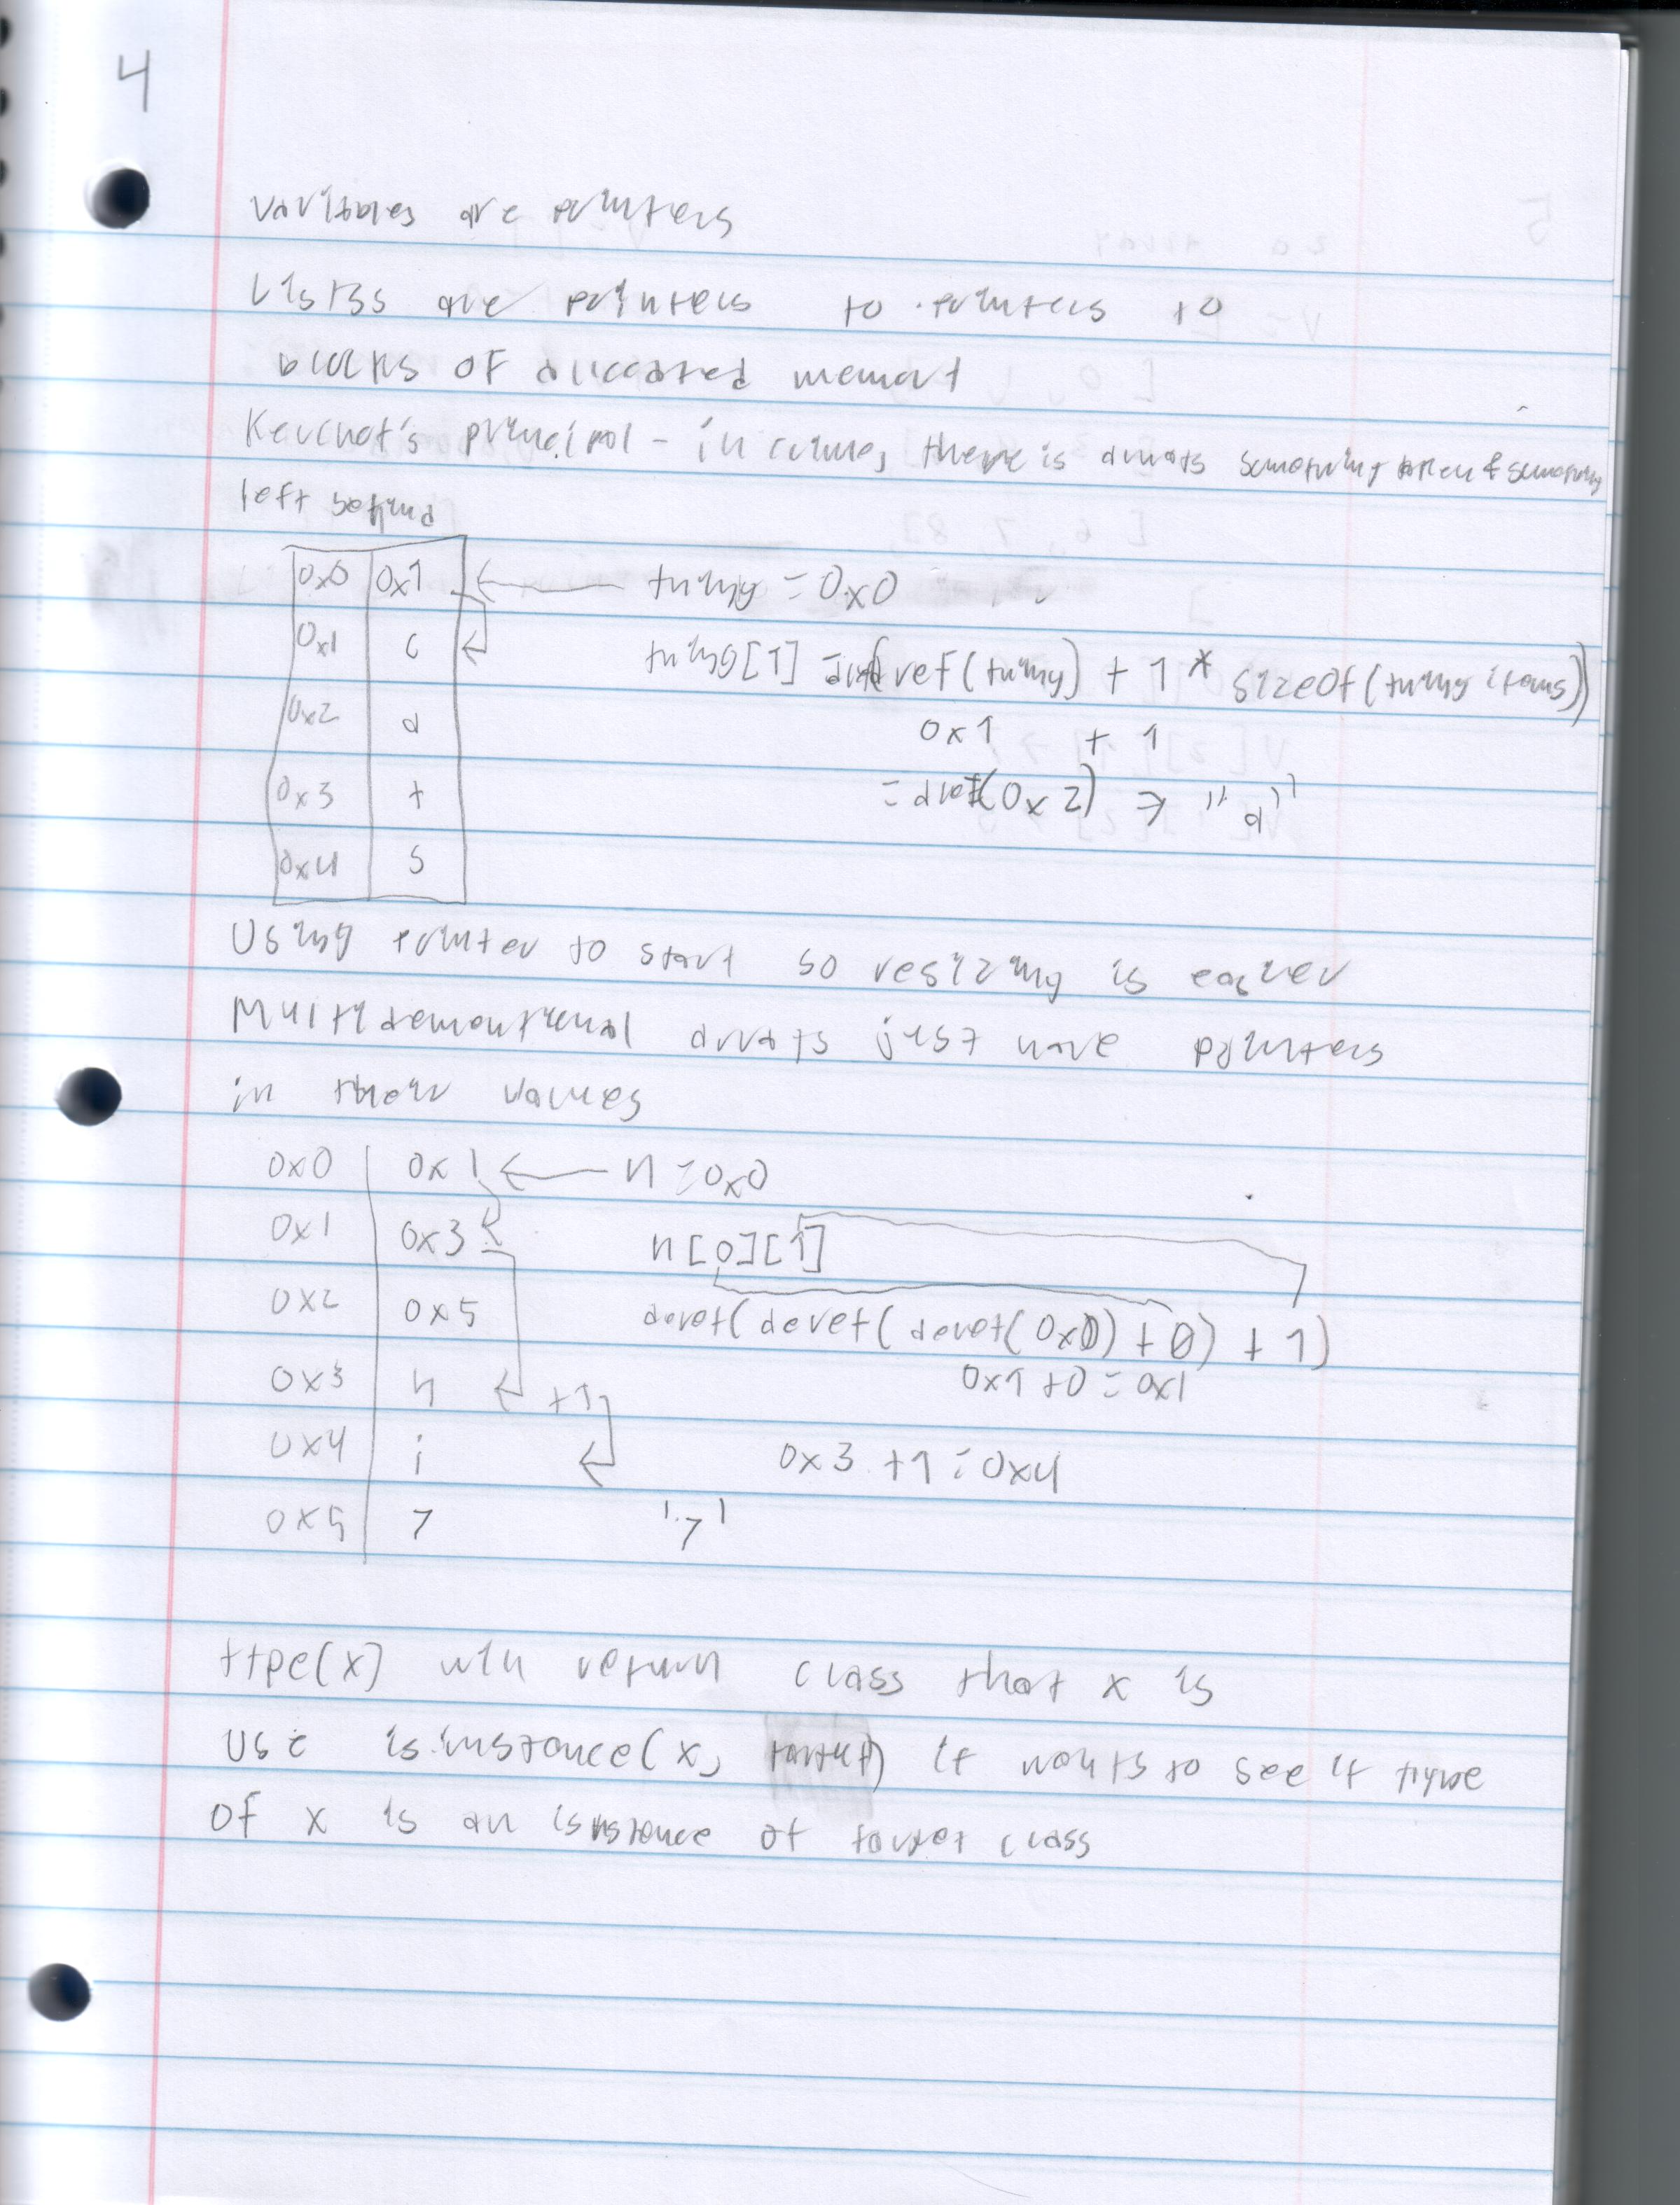 4
Variables are pointers
Lists are pointers to pointers to
blocks of allocated memory
principal - in crime, there is always something taken & something
left behind
0x0 0x1 ← thing = 0x0
0x1 c thing[1] = deref(thing) + 1 * sizeof(thing items))
0x2 a 0x1 + 1
0x3 t = dref(0x2) => "a"
0x4 s
Using pointer to start so resizing is easier
Multidementional arrays just have pointers
in their values
0x0 0x1 ← n = 0x0
0x1 0x3 n[0][1]
0x2 0x5 deref(deref(deref(0x0) + 0) + 1)
0x1 + 0 = 0x1
0x3 h +1
0x4 i 0x3 + 1 = 0x4
0x5 7
type(x) will return class that x is
Use isinstance(x, target) if wants to see if type
of x is an isnstance of target class